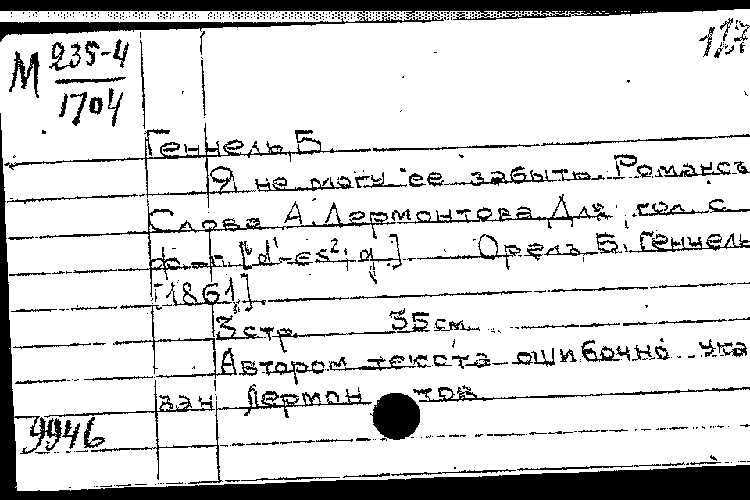 М 235-4
1704
117
Геннель, Б.
Я не могу ее забыть. Романсъ
Слова А. Лермонтова. Для гол. с
ф.-п. [d¹-es²; g.] Орелъ, Б. Геннель
[1861].
3 стр. 35 см.
Автором текста ошибочно ука
зан Лермон тов.
9946